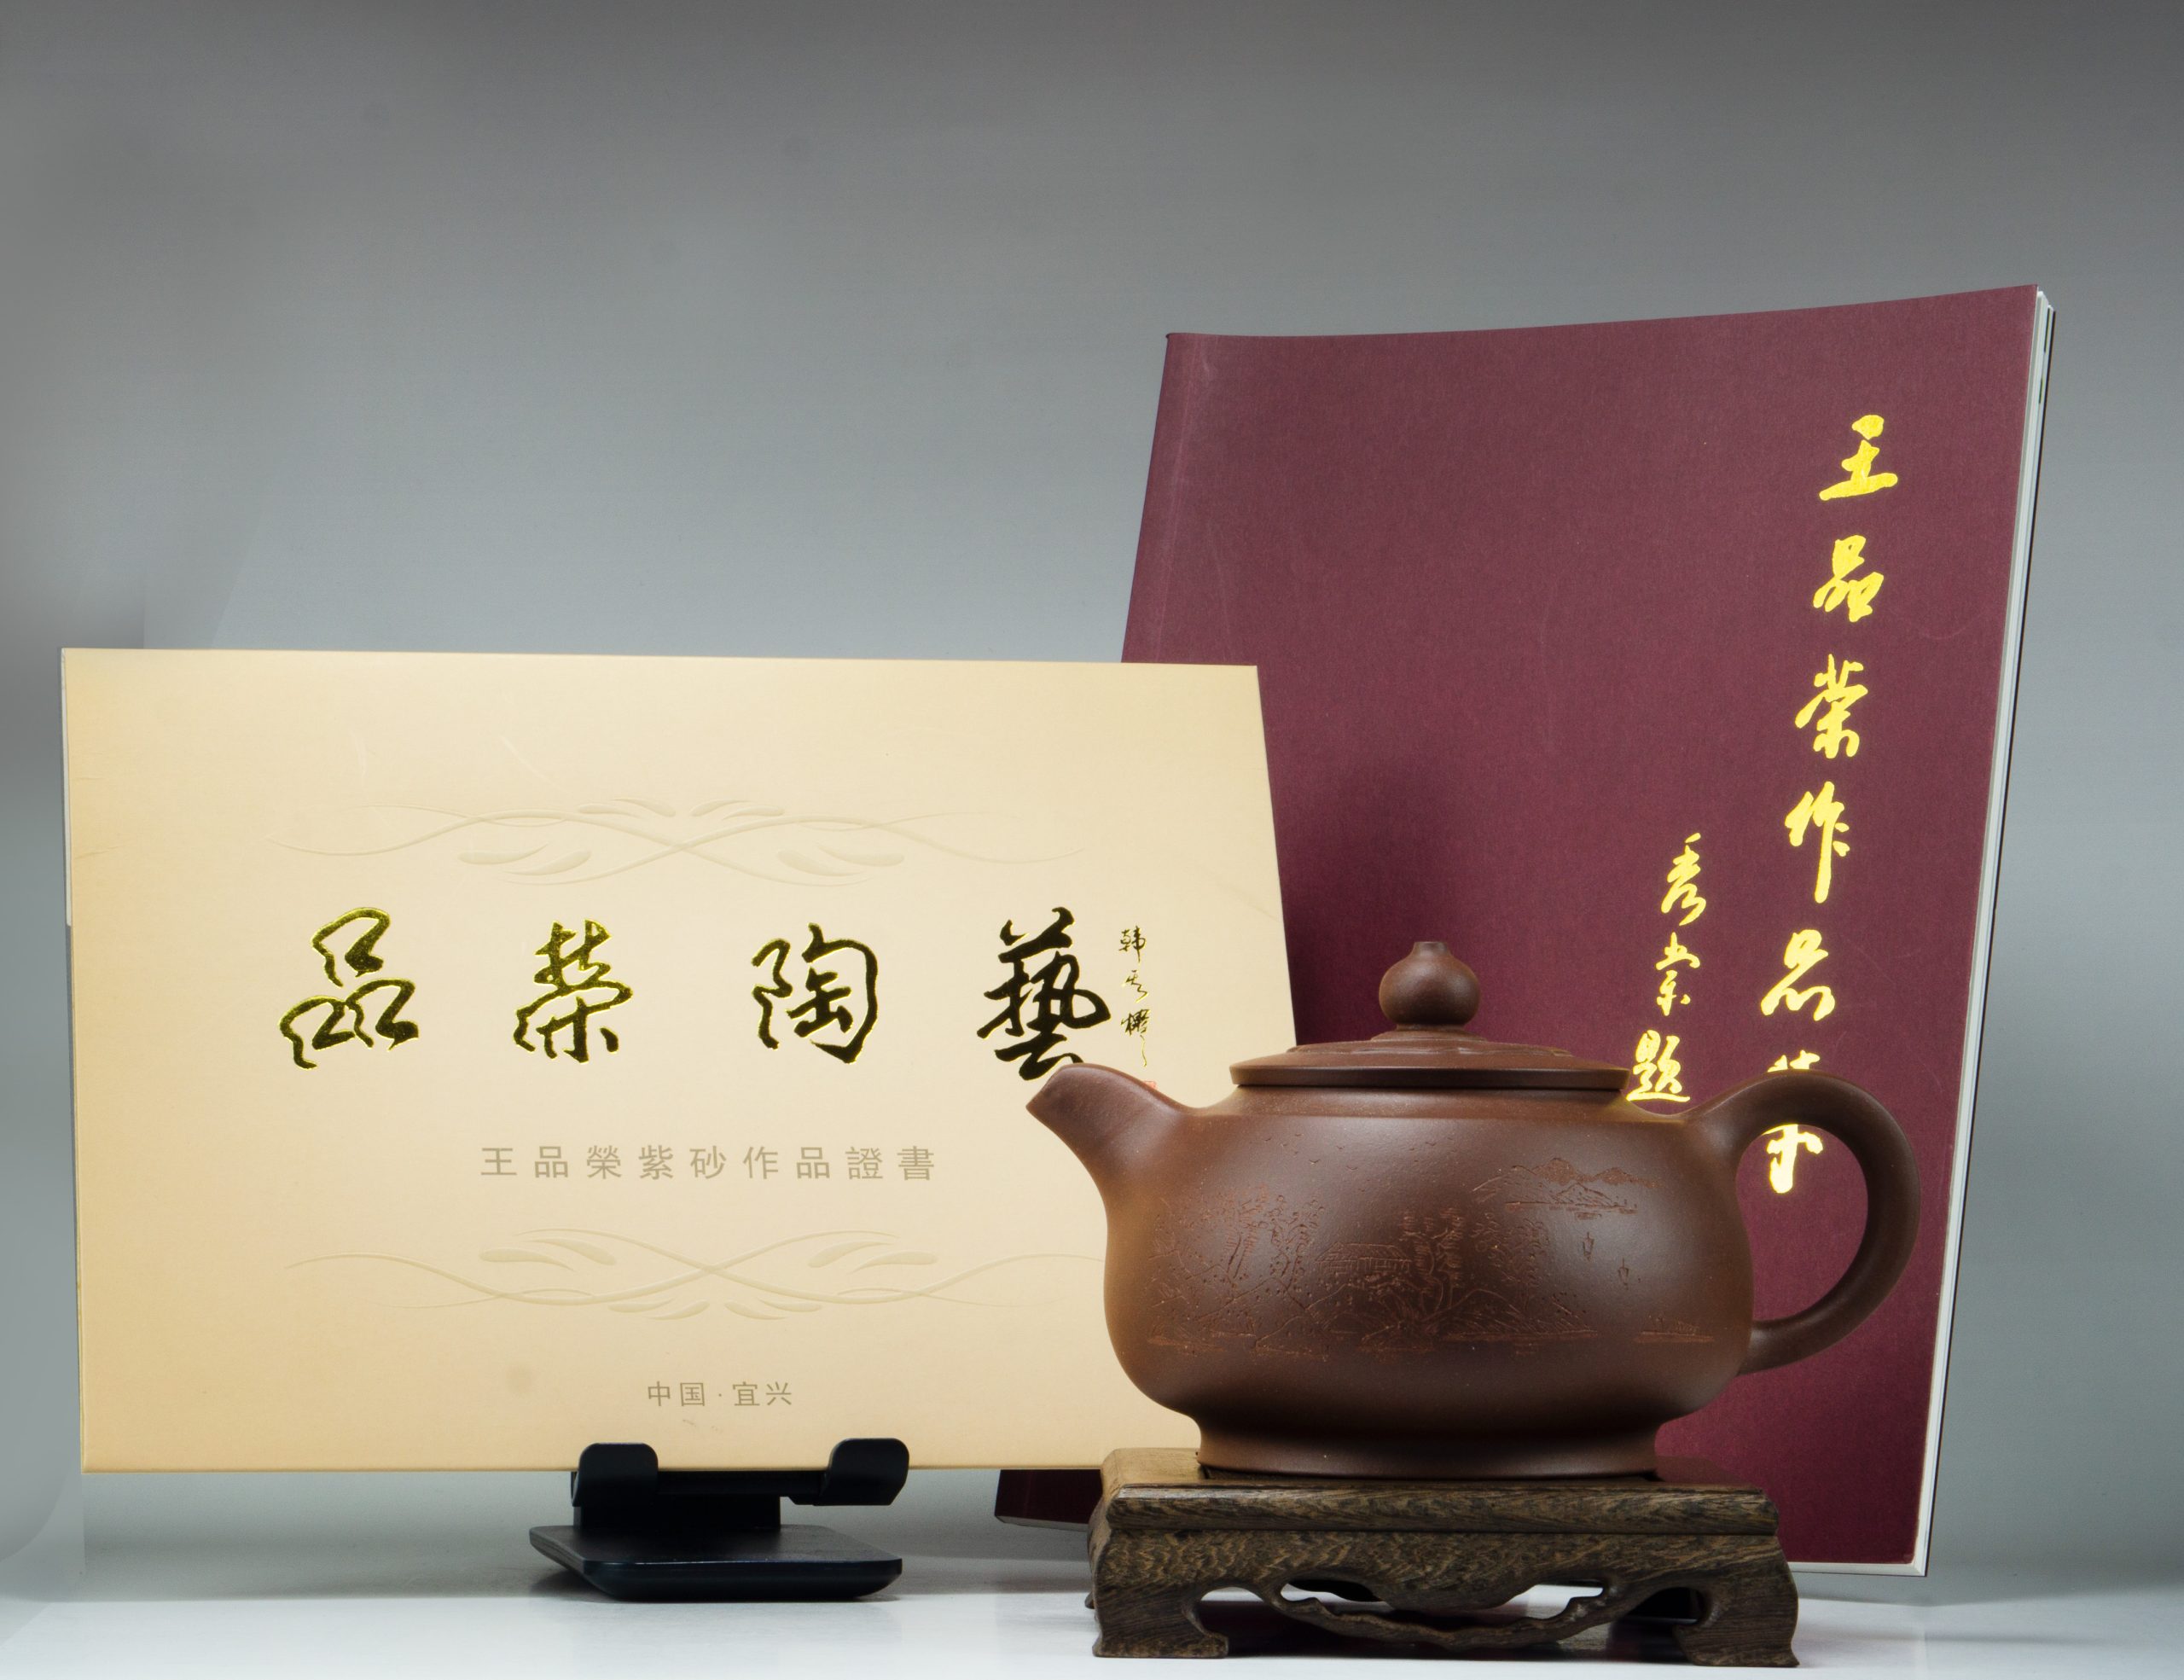 品榮陶藝
王品榮紫砂作品證書
中国·宜兴
王品榮作品集
秀棠題